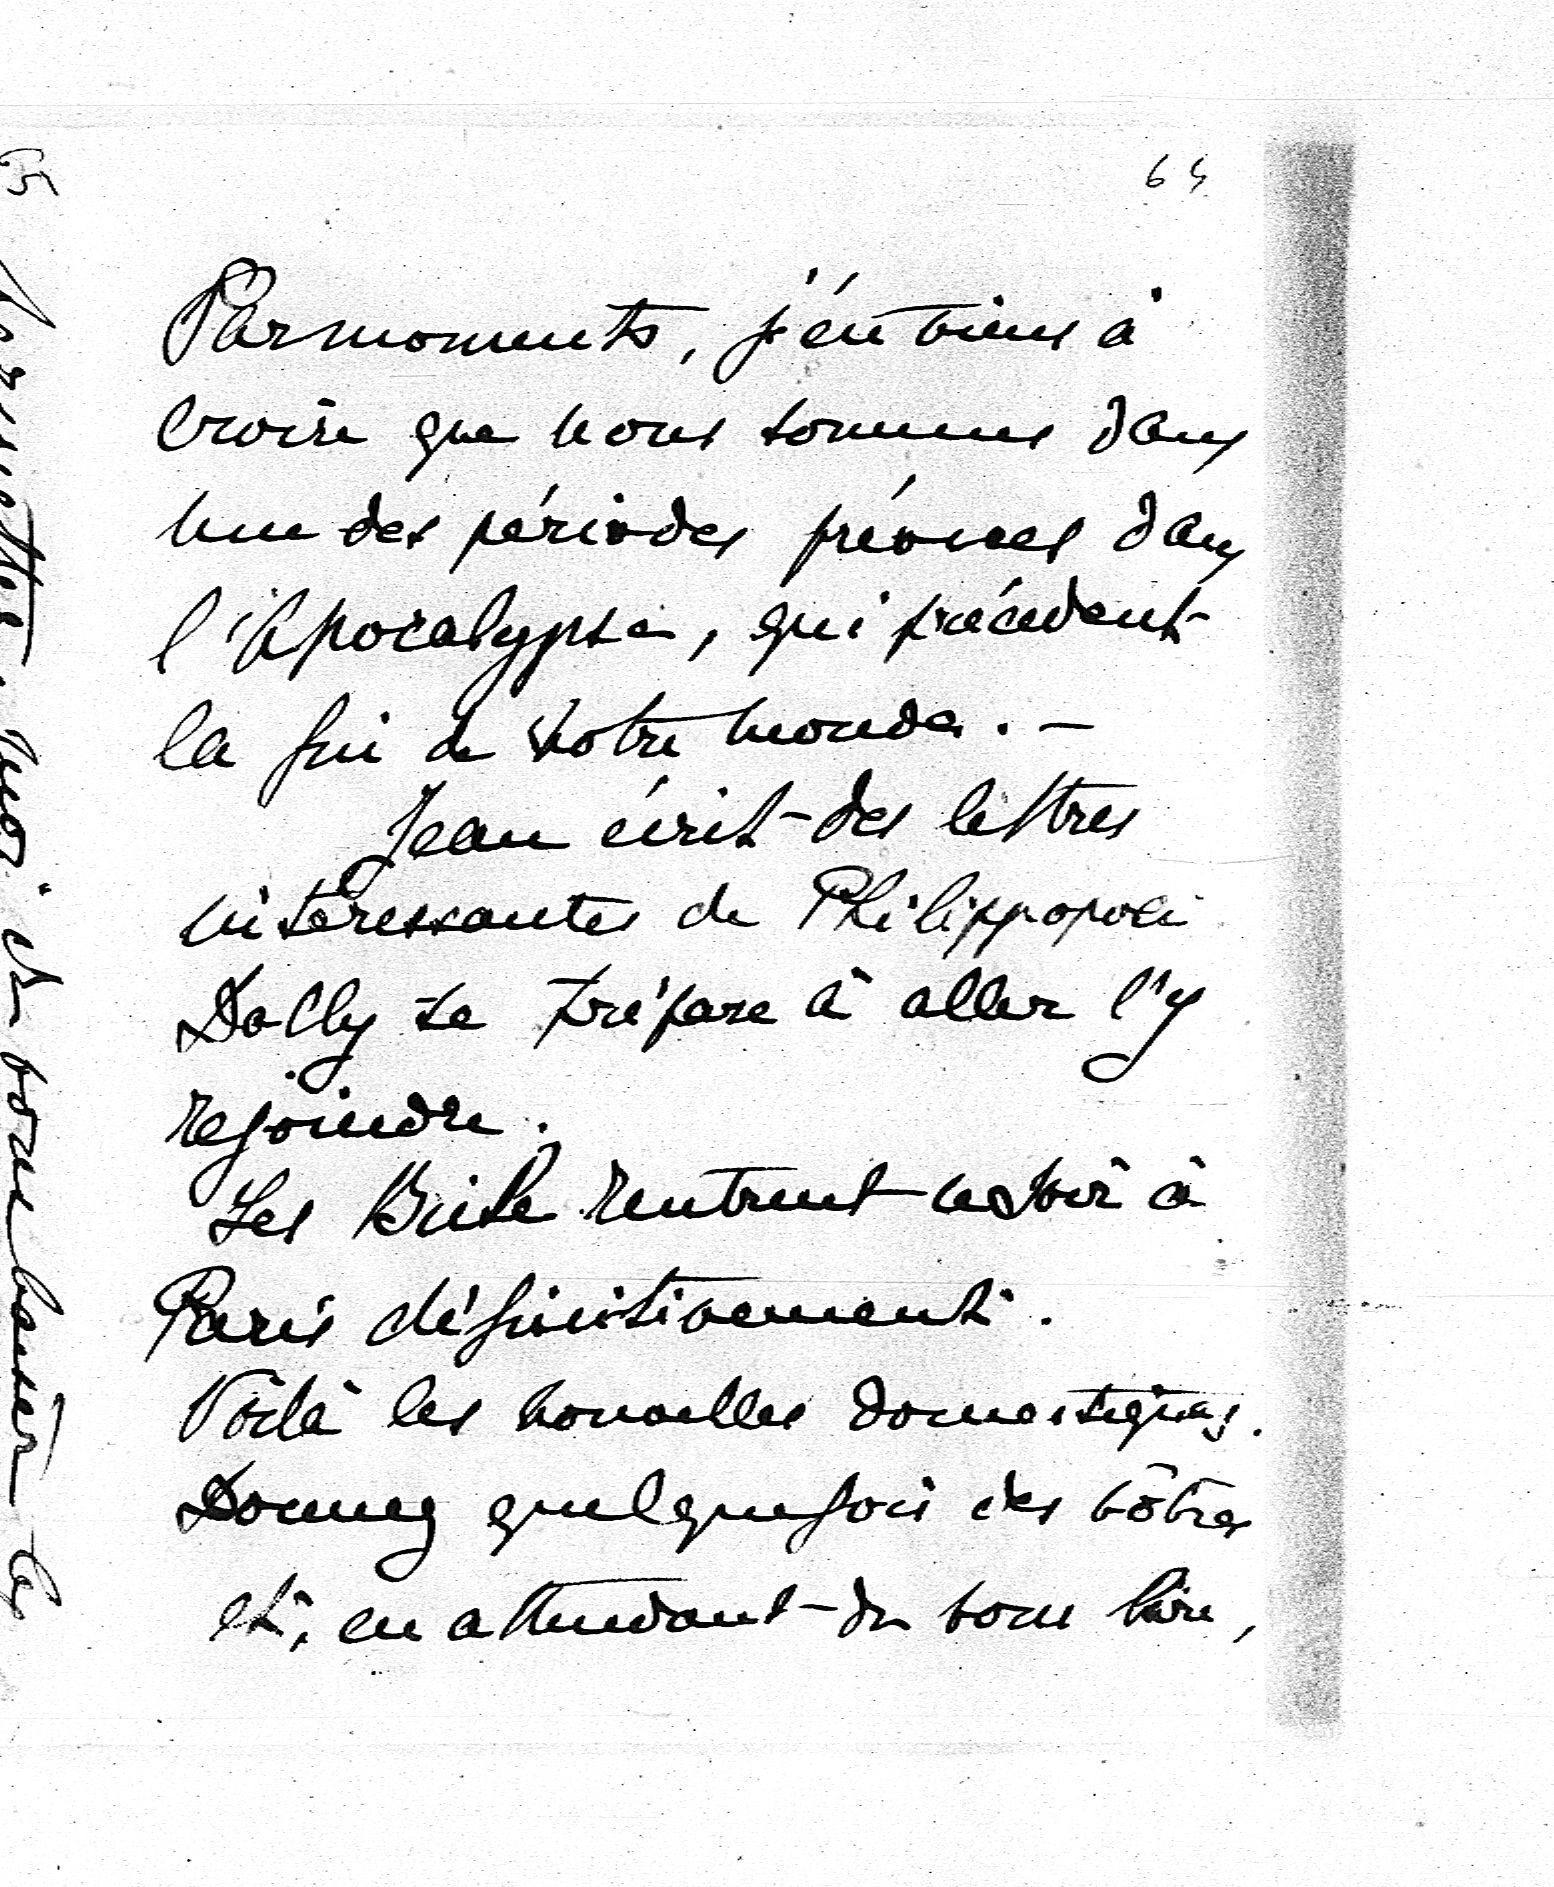 65
Par moments, j'en viens à
croire que nous sommes dans
une des périodes prévues dans
l'Apocalypse, qui précèdent
la fin de notre monde. —
Jean écrit des lettres
intéressantes de Philippopoli
Dolly se prépare à aller l'y
rejoindre.
Les rentrent ce soir à
Paris définitivement.
Voilà les nouvelles domestiques.
Donnez quelquefois des vôtres
et, en attendant de vous lire,
65
permettez moi de vous baiser les